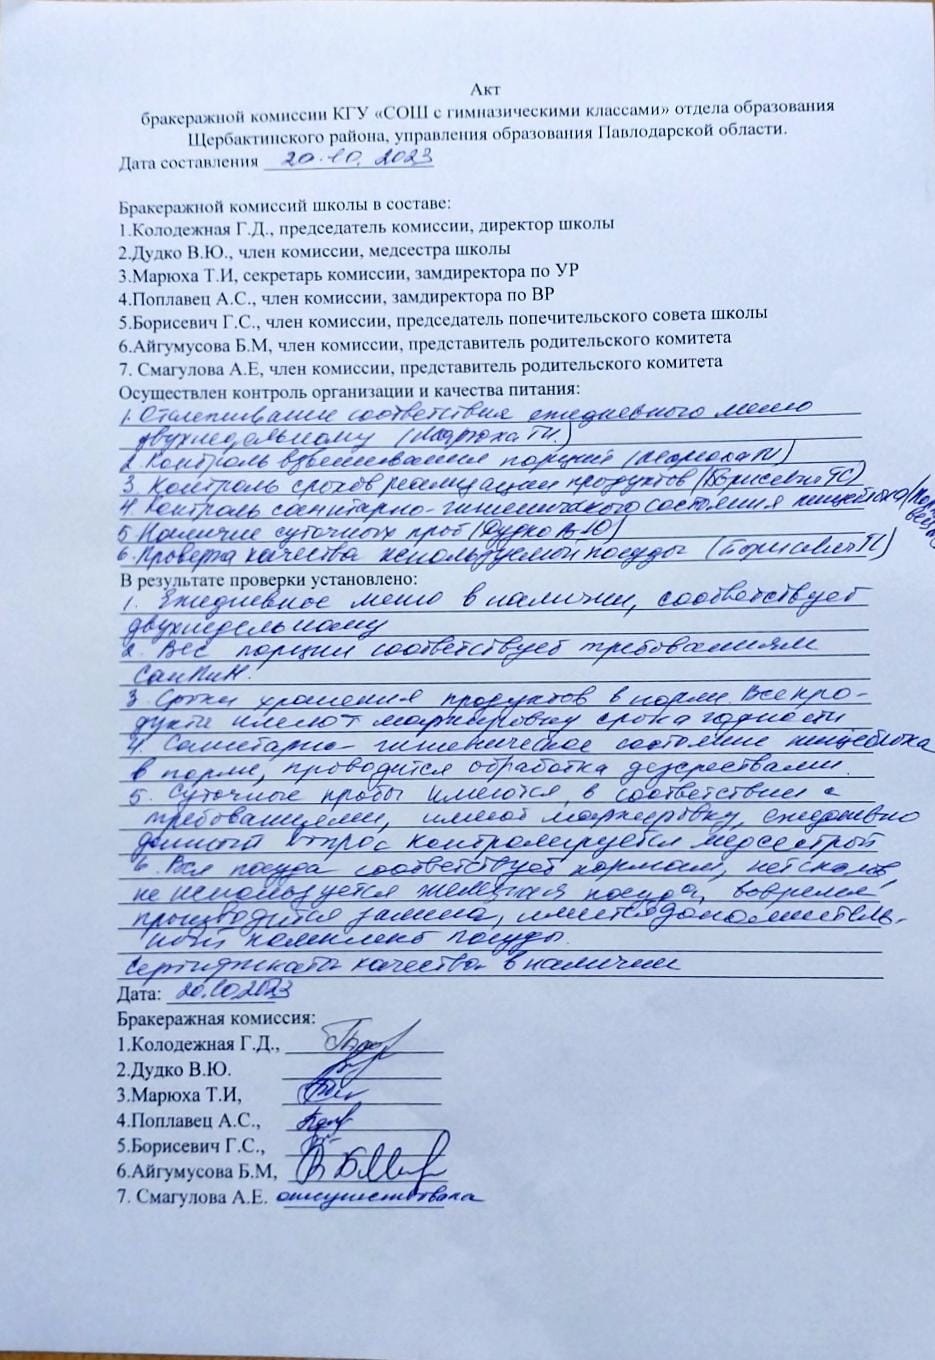 Акт
бракеражной комиссии КГУ «СОШ с гимназическими классами» отдела образования
Щербактинского района, управления образования Павлодарской области.
Дата составления 20.10.2023
Бракеражной комиссий школы в составе:
1.Колодежная Г.Д., председатель комиссии, директор школы
2.Дудко В.Ю., член комиссии, медсестра школы
3.Марюха Т.И, секретарь комиссии, замдиректора по УР
4.Поплавец А.С., член комиссии, замдиректора по ВР
5.Борисевич Г.С., член комиссии, председатель попечительского совета школы
6.Айгумусова Б.М, член комиссии, представитель родительского комитета
7. Смагулова А.Е, член комиссии, представитель родительского комитета
Осуществлен контроль организации и качества питания:
1. Отслеживание соответствия ежедневного меню
двухнедельному (Марюха ТИ.)
2. Контроль взвешивания порций (Марюха ТИ)
3. Контроль сроков реализации продуктов (Борисевич ГС)
4. Контроль санитарно-гигиенического состояния пищеблока (Поплавец
5. Наличие суточных проб (Дудко В.Ю)
6. Проверка качества используемой посуды (Борисевич ГС)
В результате проверки установлено:
1. Ежедневное меню в наличии, соответствует
двухнедельному
2. Вес порции соответствует требованиям
СанПиН.
3. Сроки хранения продуктов в норме. Все про-
дукты имеют маркировку срока годности
4. Санитарно-гигиеническое состояние пищеблока
в норме, проводится обработка дезсредствами.
5. Суточные пробы имеются, в соответствии с
требованиями, имеют маркировку, ежедневно
данный вопрос контролируется медсестрой
6. Вся посуда соответствует нормам, нет сколов,
не используется железная посуда, вовремя
производится замена, имеется дополнитель-
ный комплект посуды.
Сертификаты качества в наличии
Дата: 20.10.2023
Бракеражная комиссия:
1.Колодежная Г.Д.,
2.Дудко В.Ю.
3.Марюха Т.И,
4.Поплавец А.С.,
5.Борисевич Г.С.,
6.Айгумусова Б.М,
7. Смагулова А.Е. отсутствовала